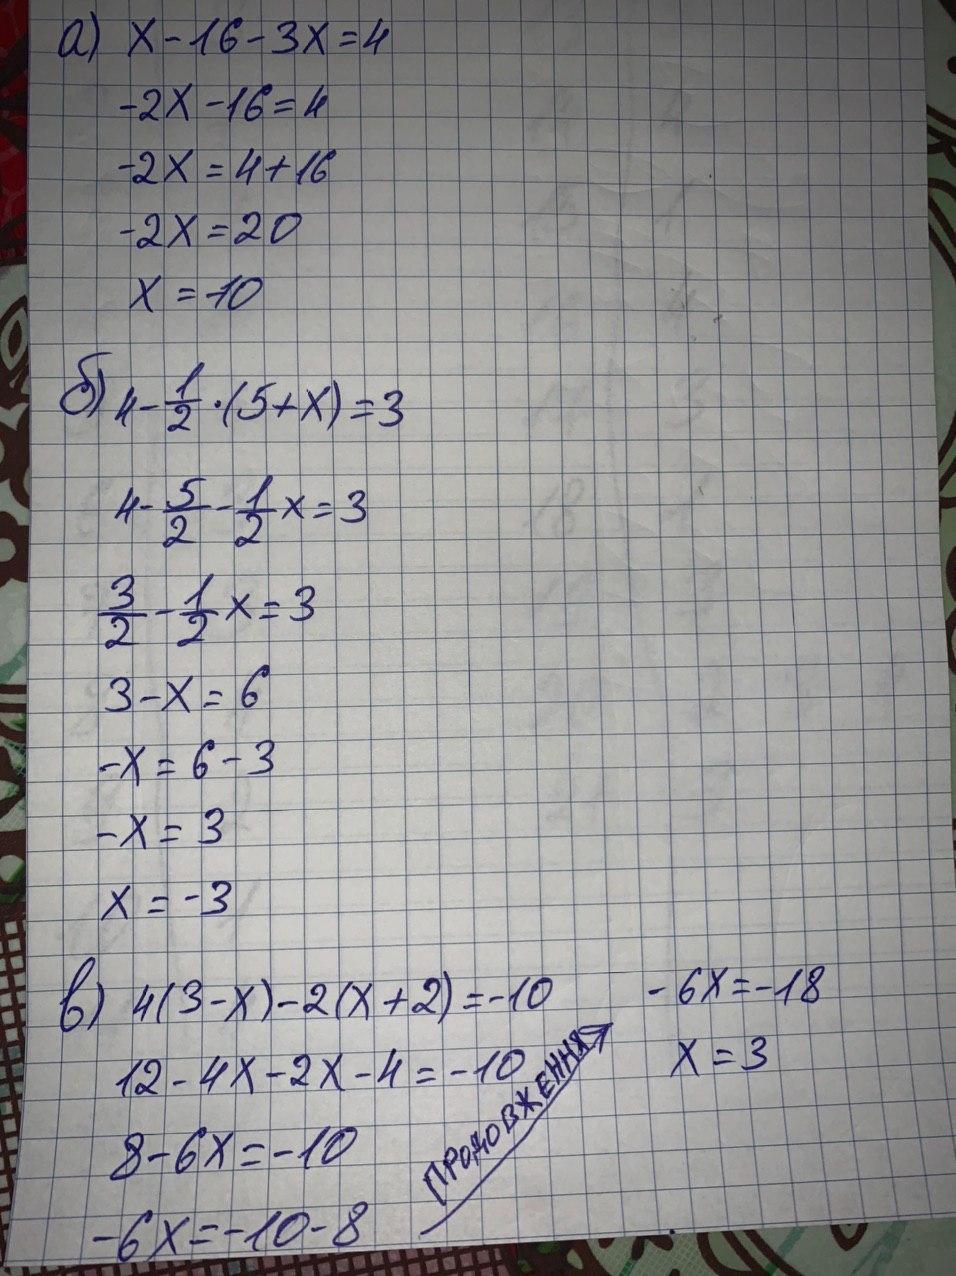 а) x-16-3x=4
-2x-16=4
-2x=4+16
-2x=20
x=-10
б) 4-1/2·(5+x)=3
4-5/2-1/2x=3
3/2-1/2x=3
3-x=6
-x=6-3
-x=3
x=-3
в) 4(3-x)-2(x+2)=-10
12-4x-2x-4=-10
8-6x=-10
-6x=-10-8
ПРОДОВЖЕННЯ
-6x=-18
x=3